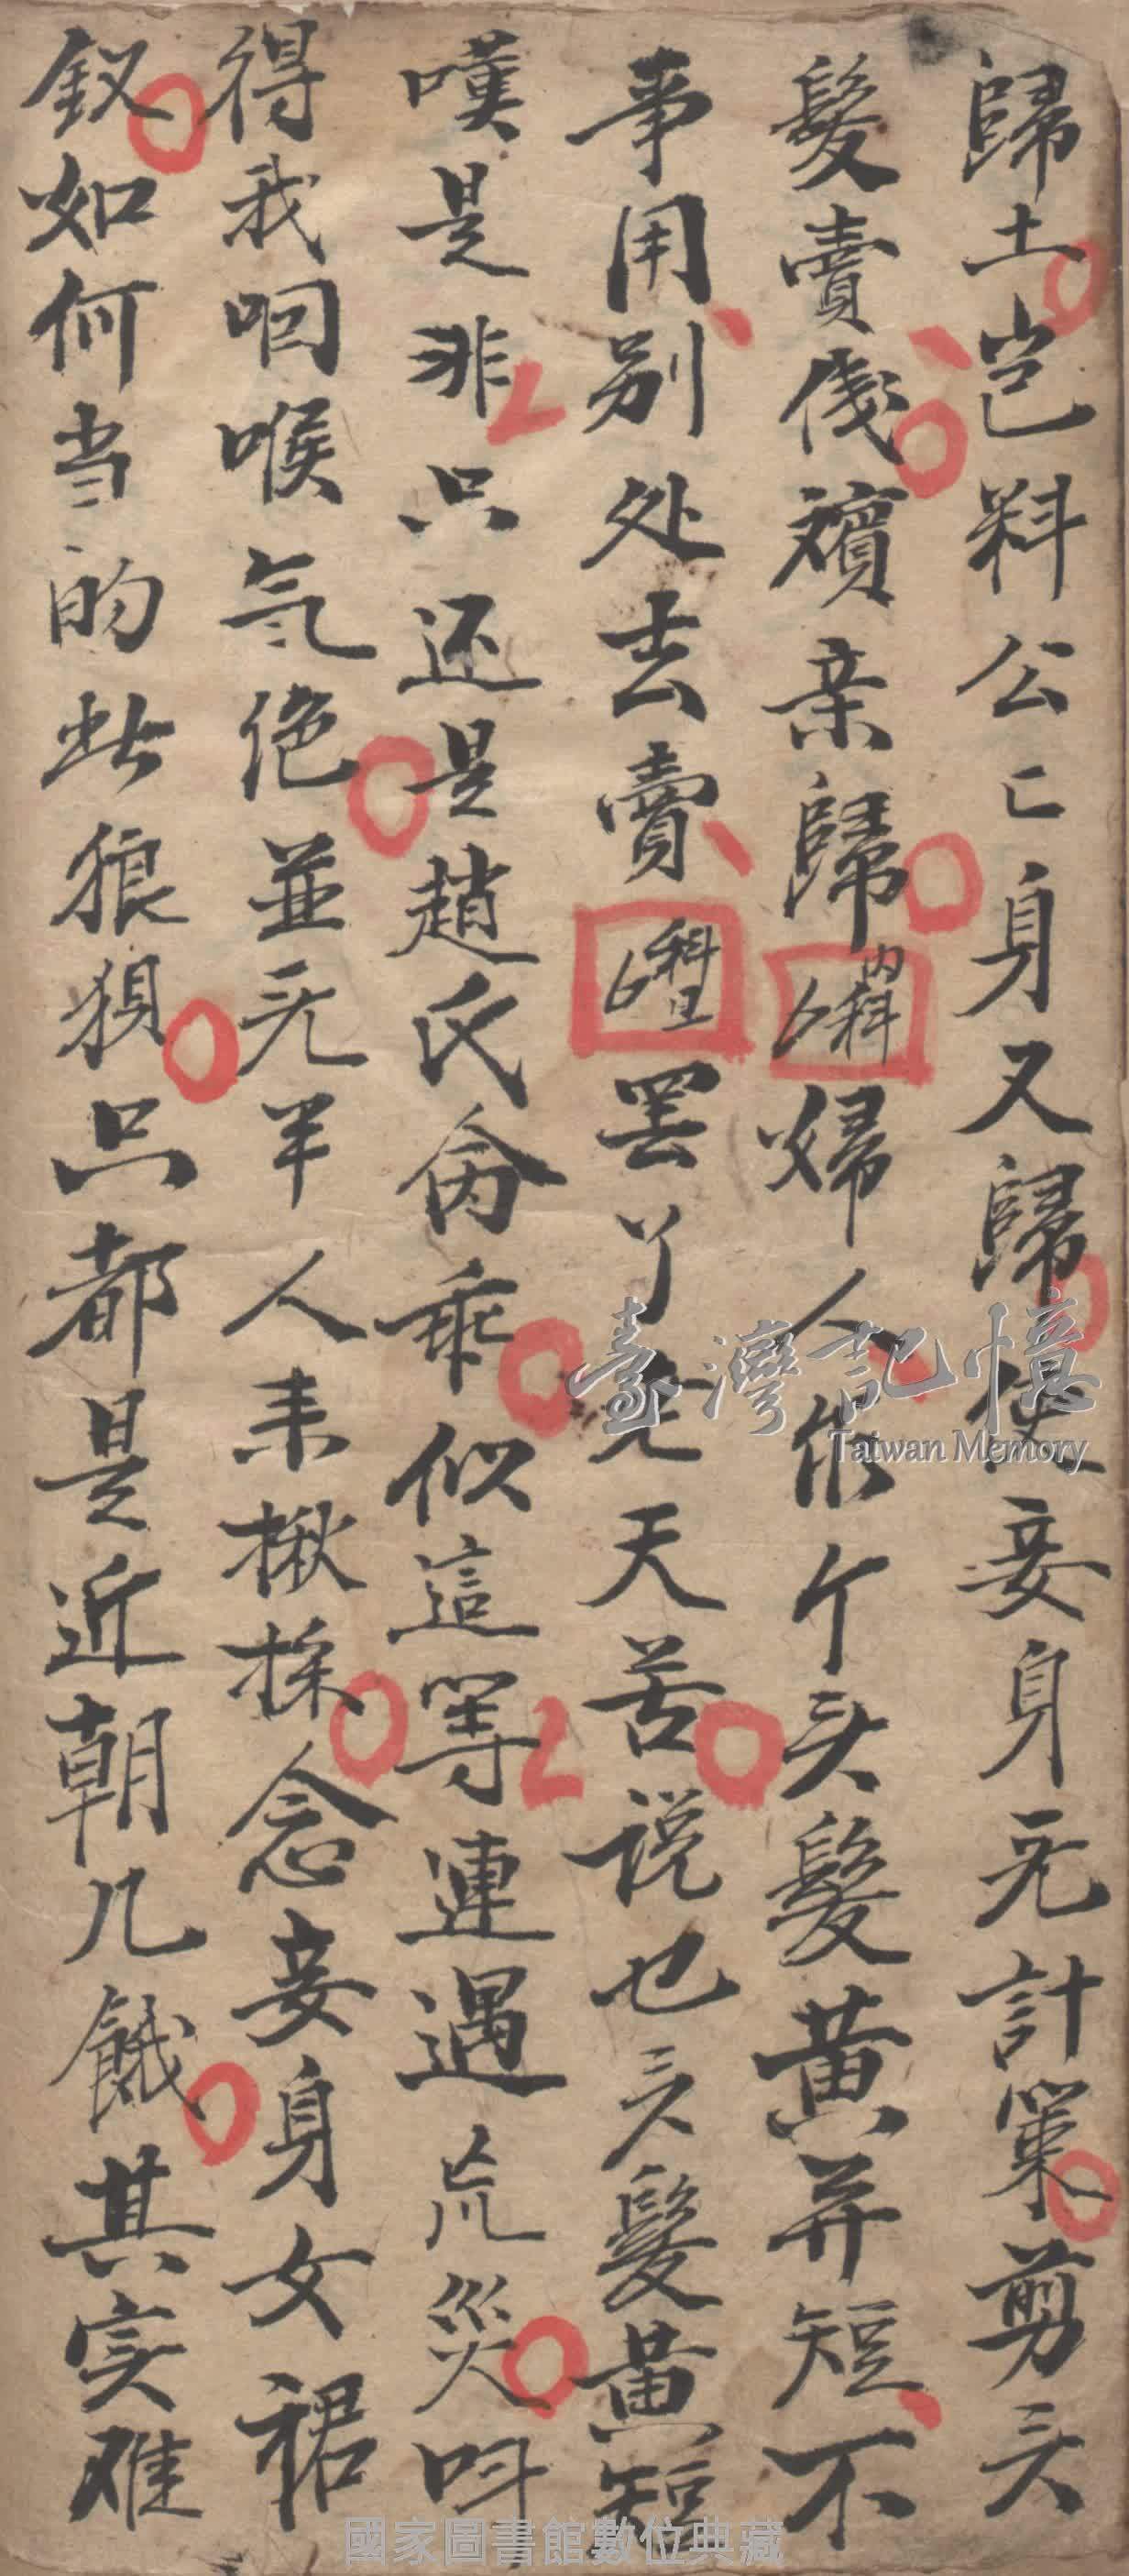 歸土岂料公亡身又歸妾身无計策剪头
髮賣伐殯亲歸
内科
婦人你个头髮黄并短不
事用别处去賣
科里
罢丫天苦说也头髮黄短
嘆是非只还是趙氏命乖似這等連遇荒災叫
得我咽喉气绝並无半人耒楸採念妾身女裙
釵如何当的此狼狽只都是近朝几餓其实难
臺灣記憶
Taiwan Memory
國家圖書館數位典藏